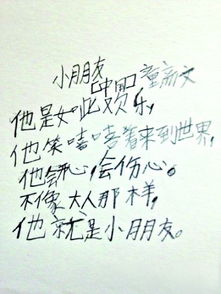 小朋友
中国 童新文
他是如此欢乐，
他笑嘻嘻着来到世界，
他会开心，会伤心。
不像大人那样，
他就是小朋友。